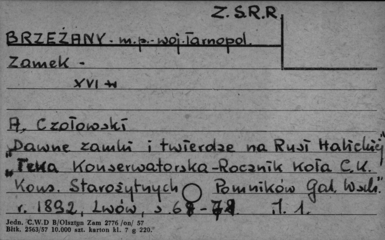 Z.S.R.R.
BRZEŻANY - m.p. - woj. Tarnopol.
Zamek -
XVI w
A. Czołowski
"Dawne zamki i twierdze na Rusi Halickiej"
"Teka Konserwatorska - Rocznik Koła C.K.
Kons. Starożytnych Pomników Gal. Wsch."
r. 1892, Lwów, s. 68-78 T. 1.
Jedn. C.W.D B/Olsztyn Zam 2776 /on/ 57
Błtk. 2563/57 10.000 szt. karton kl. 7 g 220."